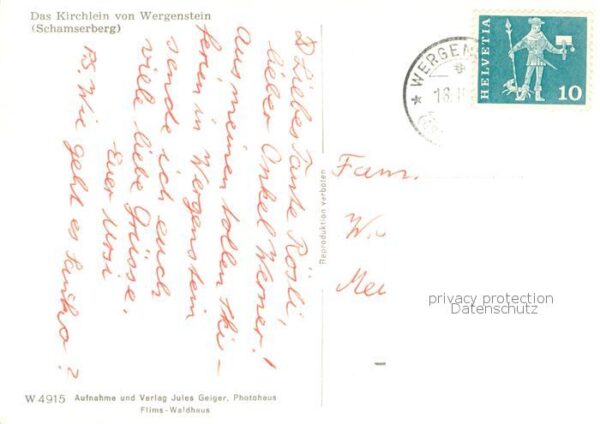 Das Kirchlein von Wergenstein
(Schamserberg)
Liebes Tante Rösli,
lieber Onkel Werner!
Aus meinen tollen Ski-
ferien in Wergenstein
sende ich euch
viele liebe Grüsse.
Euer Ursi
Wie geht es ?
Reproduktion verboten
W 4915 Aufnahme und Verlag Jules Geiger, Photohaus
Flims-Waldhaus
WERGEN
18.
HELVETIA
10
Fam.
privacy protection
Datenschutz